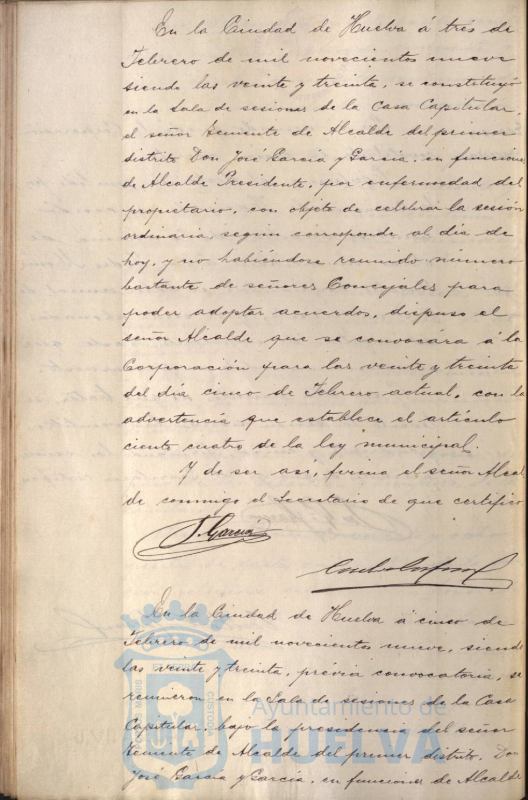 En la Ciudad de Huelva á tres de
Febrero de mil novecientos nueve
siendo las veinte y treinta, se constituyó
en la Sala de sesiones de la Casa Capitular,
el señor Teniente de Alcalde del primer
distrito Don José García y García, en funciones
de Alcalde Presidente, por enfermedad del
propietario, con objeto de celebrar la sesión
ordinaria, según corresponde al dia de
hoy, y no habiéndose reunido numero
bastante de señores Concejales para
poder adoptar acuerdos, dispuso el
señor Alcalde que se convocára á la
Corporación para las veinte y treinta
del dia cinco de Febrero actual, con la
advertencia que establece el artículo
ciento cuatro de la ley municipal.
Y de ser asi, firma el señor Alcal
de conmigo el Secretario de que certifico
J. García
En la Ciudad de Huelva á cinco de
Febrero de mil novecientos nueve, siendo
las veinte y treinta, prévia convocatoria, se
reunieron en la Sala de sesiones de la Casa
Capitular, bajo la presidencia del señor
Teniente de Alcalde del primer distrito, Don
José García y García, en funciones de Alcalde
Ayuntamiento de
HUELVA